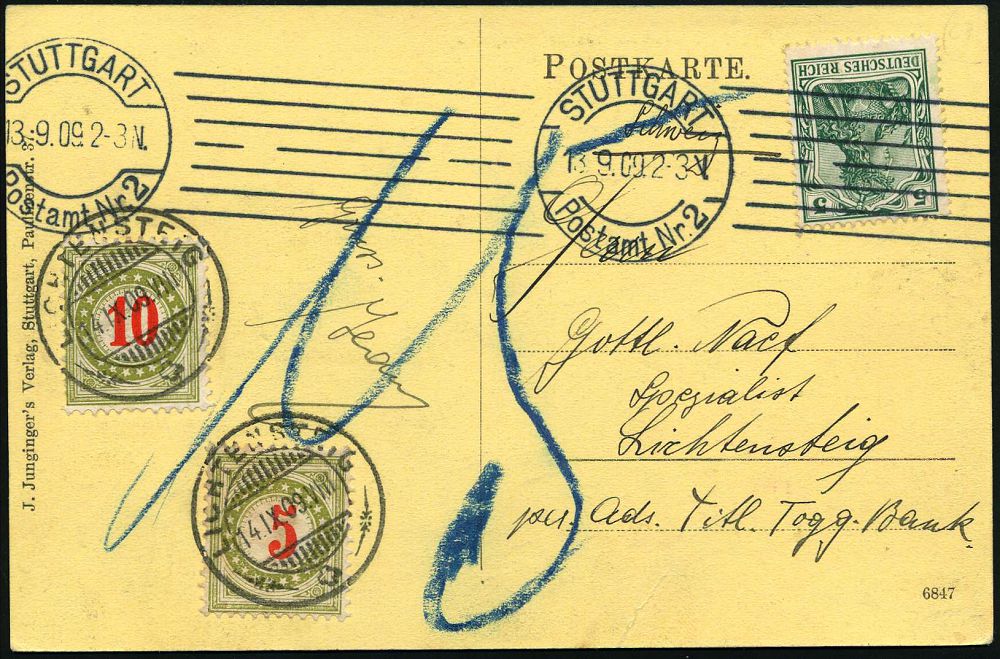 POSTKARTE.
STUTTGART
13.9.09.2-3N.
Postamt Nr.2
STUTTGART
13.9.09.2-3N.
Postamt Nr.2
DEUTSCHES REICH
5 5
Schweiz
LICHTENSTEIG
14.IX.09
10
LICHTENSTEIG
14.IX.09
5
15
Gottl. Naef
Spezialist
Lichtensteig
per. Ads. Titl. Togg. Bank.
J. Junginger's Verlag, Stuttgart, Paulinenstr. 3.
6847